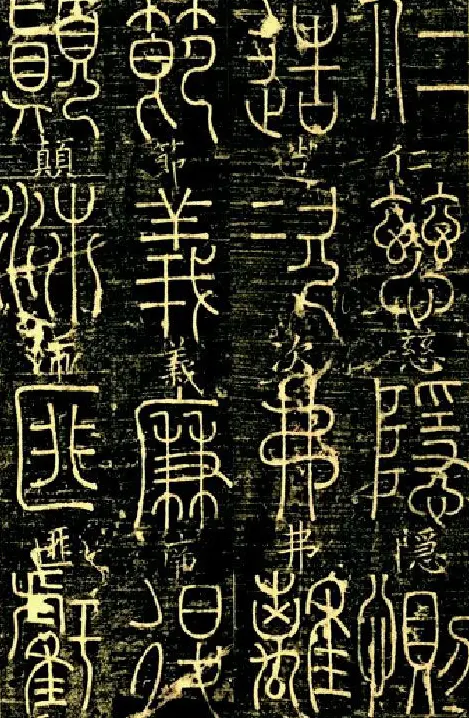 仁仁慈慈隱隠惻
造造次次弗弗離
節節義義廉廉退
顛顛沛沛匪匪虧